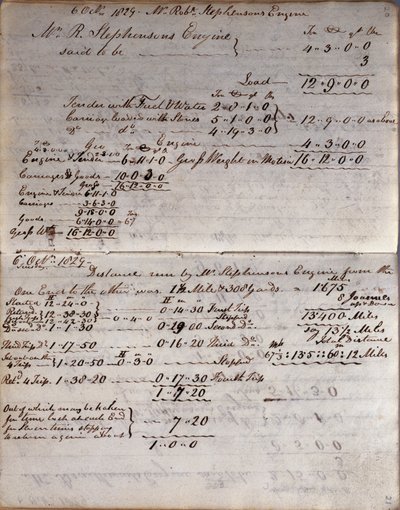 6 Octr. 1829. Mr. Robt. Stephensons Engine
Tn Ct qr lbs
Mr. R. Stephensons Engine
said to be 4 " 3 " 0 " 0
3
Load 12 " 9 " 0 " 0
Tn Ct qr lb
Tender with Fuel & Water 2 - 0 - 1 - 0
Carriage loaded with Stones 5 - 1 - 0 - 0 12 " 9 " 0 " 0 as above
Do. do. 4 - 19 - 3 - 0
Engine 4 - 3 - 0 - 0
Engine & Tender 6 - 11 - 1 - 0 Gross Weight in Motion 16 - 12 - 0 - 0
Carriages & Goods 10 - 0 - 3 - 0
Gross 16 - 12 - 0 - 0
Engine & Tender 6 - 11 - 1 - 0
Carriages 3 - 6 - 3 - 0
9 - 18 - 0 - 0
Goods 6 - 14 - 0 - 0 = 67
Gross Wt. 16 - 12 - 0 - 0
6 Octr. 1829 -
Tuesday
Distance run by Mr. Stephensons Engine from the
One End to the other was 1½ Mile & 308 Yards = 1.675
8 Journies
Started 12 - 24 - 0
0 - 14 - 30 First Trip
13.400 Miles
0 - 4 - 0 Stopped
1 - 1 - 30 Second Do.
Third Trip Do. 1 - 17 - 50 0 - 16 - 20 Third Do.
4 Trips 1 - 20 - 50 0 - 3 - 0 Stopped 67½ : 13.5 :: 60 : 12 Miles
Retd. 4 Trips 1 - 38 - 20 0 - 17 - 30 Fourth Trip
1 - 7 - 20
Out of which may be taken
for time lost at each End
for Seven times stopping 7 - 20
to return again about
1 - 0 - 0